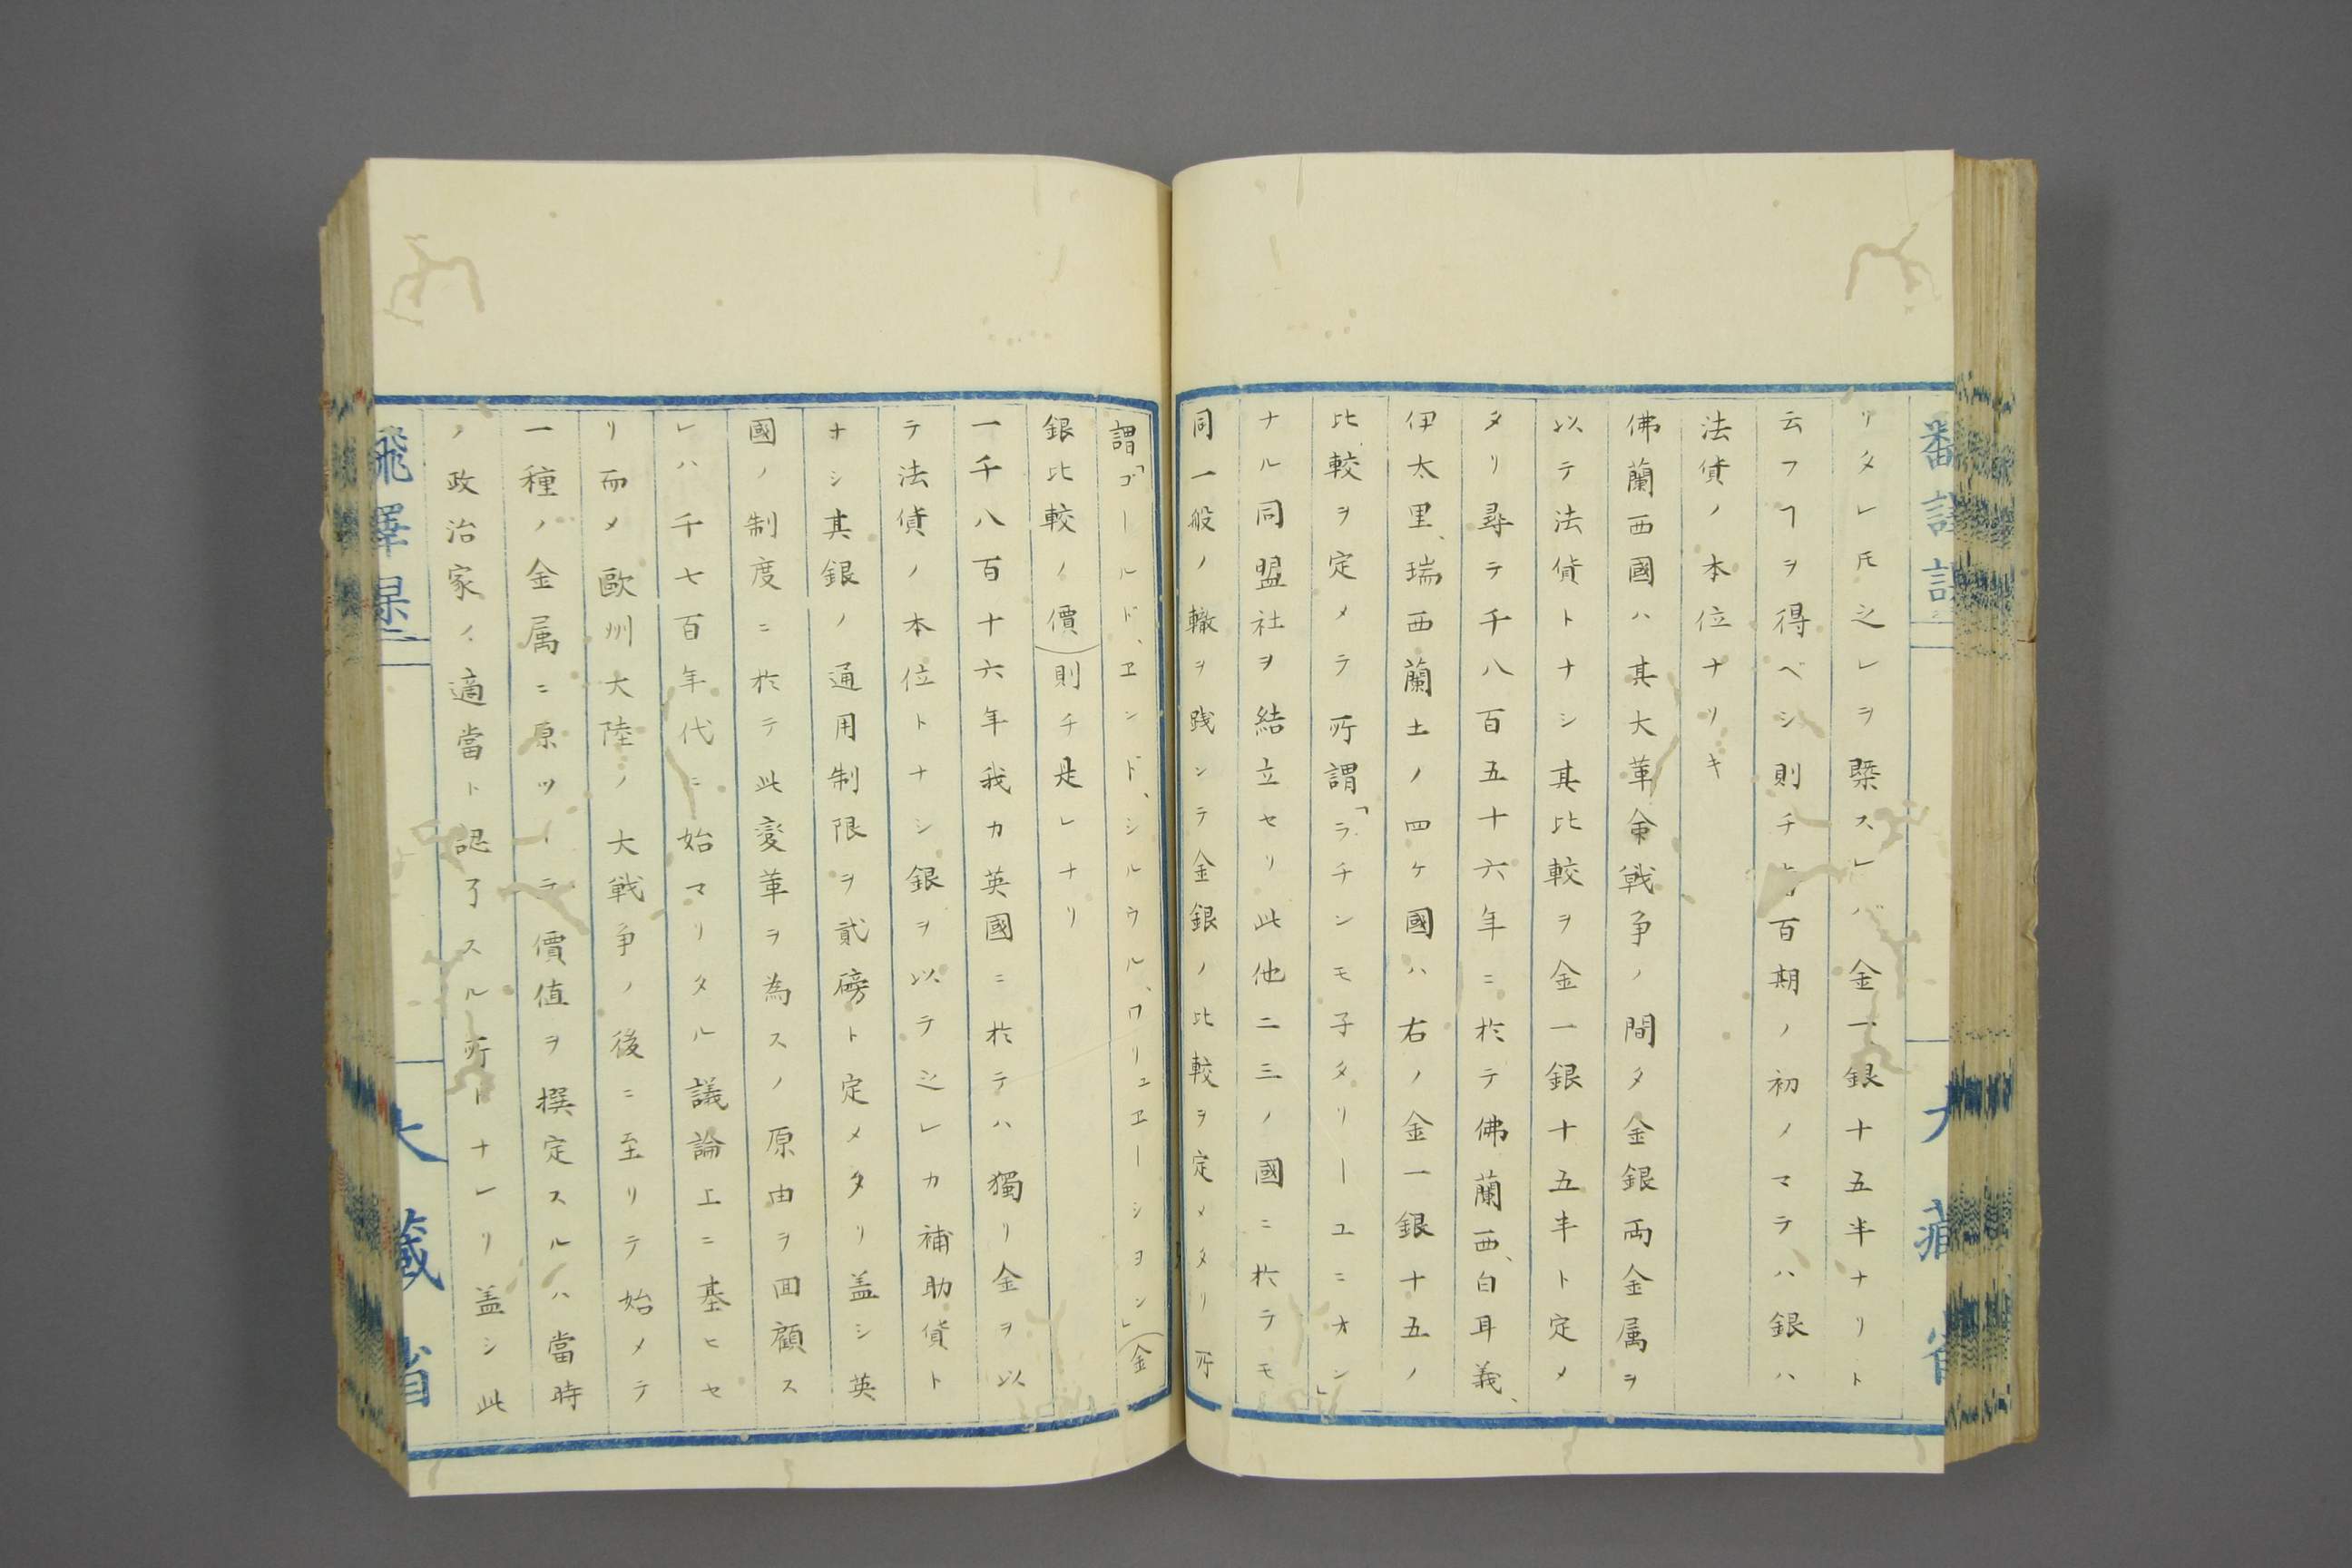 リタレ𪜈之レヲ槩スレバ金一銀十五半ナリト
云フヿヲ得ベシ則チ百期ノ初ノマテハ銀ハ
法貨ノ本位ナリキ
佛蘭西國ハ其大革命戦争ノ間タ金銀両金属ヲ
以テ法貨トナシ其比較ヲ金一銀十五半ト定メ
タリ尋テ千八百五十六年ニ於テ佛蘭西、白耳義、
伊太里、瑞西蘭土ノ四ケ國ハ右ノ金一銀十五ノ
比較ヲ定メテ所謂「ラチンモ子タリーユニオン」
ナル同盟社ヲ結立セリ此他二三ノ國ニ於テモ
同一般ノ轍ヲ践ンテ金銀ノ比較ヲ定メタリ所
謂「ゴールド、エンド、シルウル、ワリュエーシヨン」(金
銀比較ノ價)則チ是レナリ
一千八百十六年我カ英國ニ於テハ獨リ金ヲ以
テ法貨ノ本位トナシ銀ヲ以テ之レカ補助貨ト
ナシ其銀ノ通用制限ヲ貳磅ト定メタリ盖シ英
國ノ制度ニ於テ此変革ヲ為スノ原由ヲ回顧ス
レハ千七百年代ニ始マリタル議論上ニ基ヒセ
リ而メ歐州大陸ノ大戦争ノ後ニ至リテ始メテ
一種ノ金属ニ原ツーテ價値ヲ撰定スルハ當時
ノ政治家ノ適當ト認了スル所トナレリ盖シ此
大藏省